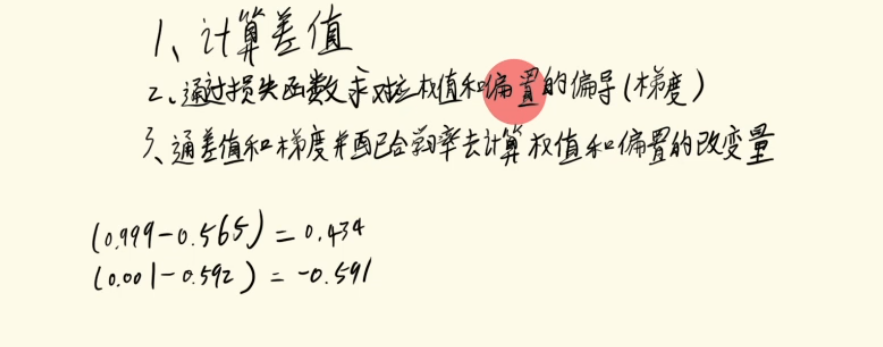 1、计算差值
2、通过损失函数求对应权值和偏置的偏导(梯度)
3、通差值和梯度并配合学习率去计算权值和偏置的改变量
(0.999-0.565)=0.434
(0.001-0.592)=-0.591